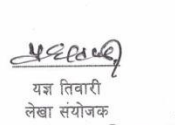 यज्ञ तिवारी
लेखा संयोजक